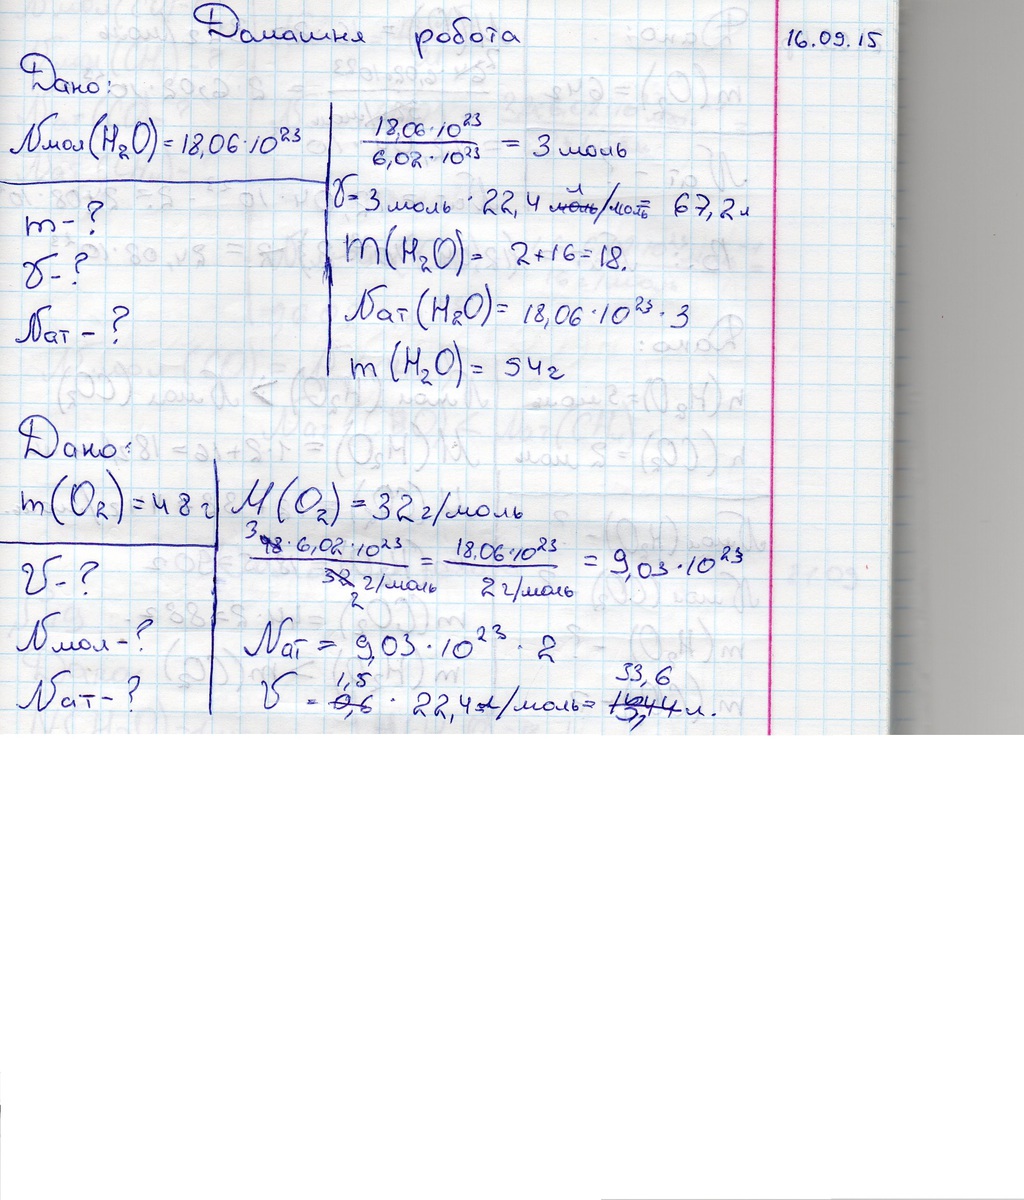 Домашня робота
16.09.15
Дано:
Nмол(H₂O)=18,06·10²³
m-?
V-?
Nат-?
18,06·10²³/6,02·10²³ = 3 моль
V=3 моль·22,4 л/моль= 67,2л
M(H₂O)= 2+16=18.
Nат(H₂O)=18,06·10²³·3
m(H₂O)= 54г
Дано:
m(O₂)=48г
V-?
Nмол-?
Nат-?
M(O₂)=32г/моль
3 48·6,02·10²³/32 2 г/моль = 18,06·10²³/2г/моль = 9,03·10²³
Nат = 9,03·10²³·2
V = 1,5 · 22,4л/моль= 33,6 л.